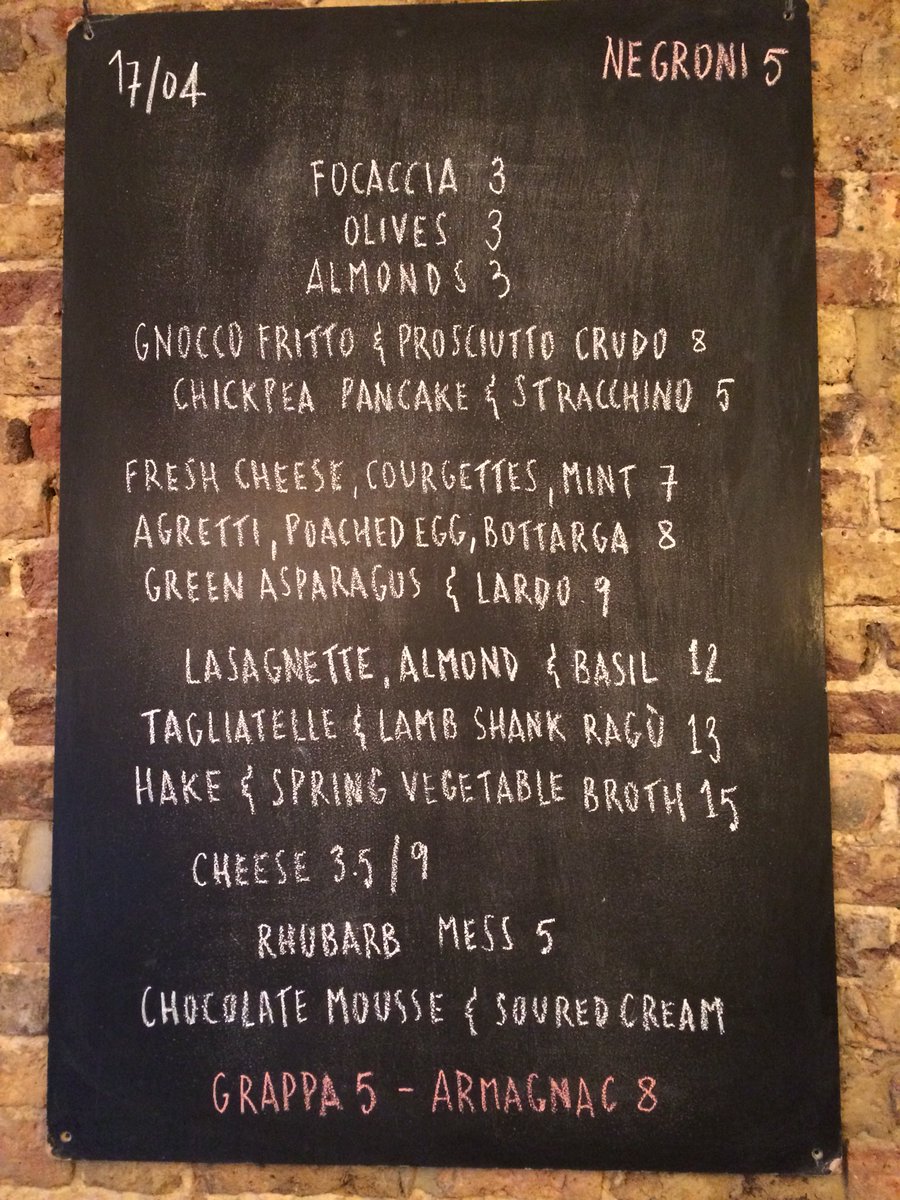 17/04
NEGRONI 5
FOCACCIA 3
OLIVES 3
ALMONDS 3
GNOCCO FRITTO & PROSCIUTTO CRUDO 8
CHICKPEA PANCAKE & STRACCHINO 5
FRESH CHEESE, COURGETTES, MINT 7
AGRETTI, POACHED EGG, BOTTARGA 8
GREEN ASPARAGUS & LARDO 9
LASAGNETTE, ALMOND & BASIL 12
TAGLIATELLE & LAMB SHANK RAGÙ 13
HAKE & SPRING VEGETABLE BROTH 15
CHEESE 3.5/9
RHUBARB MESS 5
CHOCOLATE MOUSSE & SOURED CREAM
GRAPPA 5 - ARMAGNAC 8